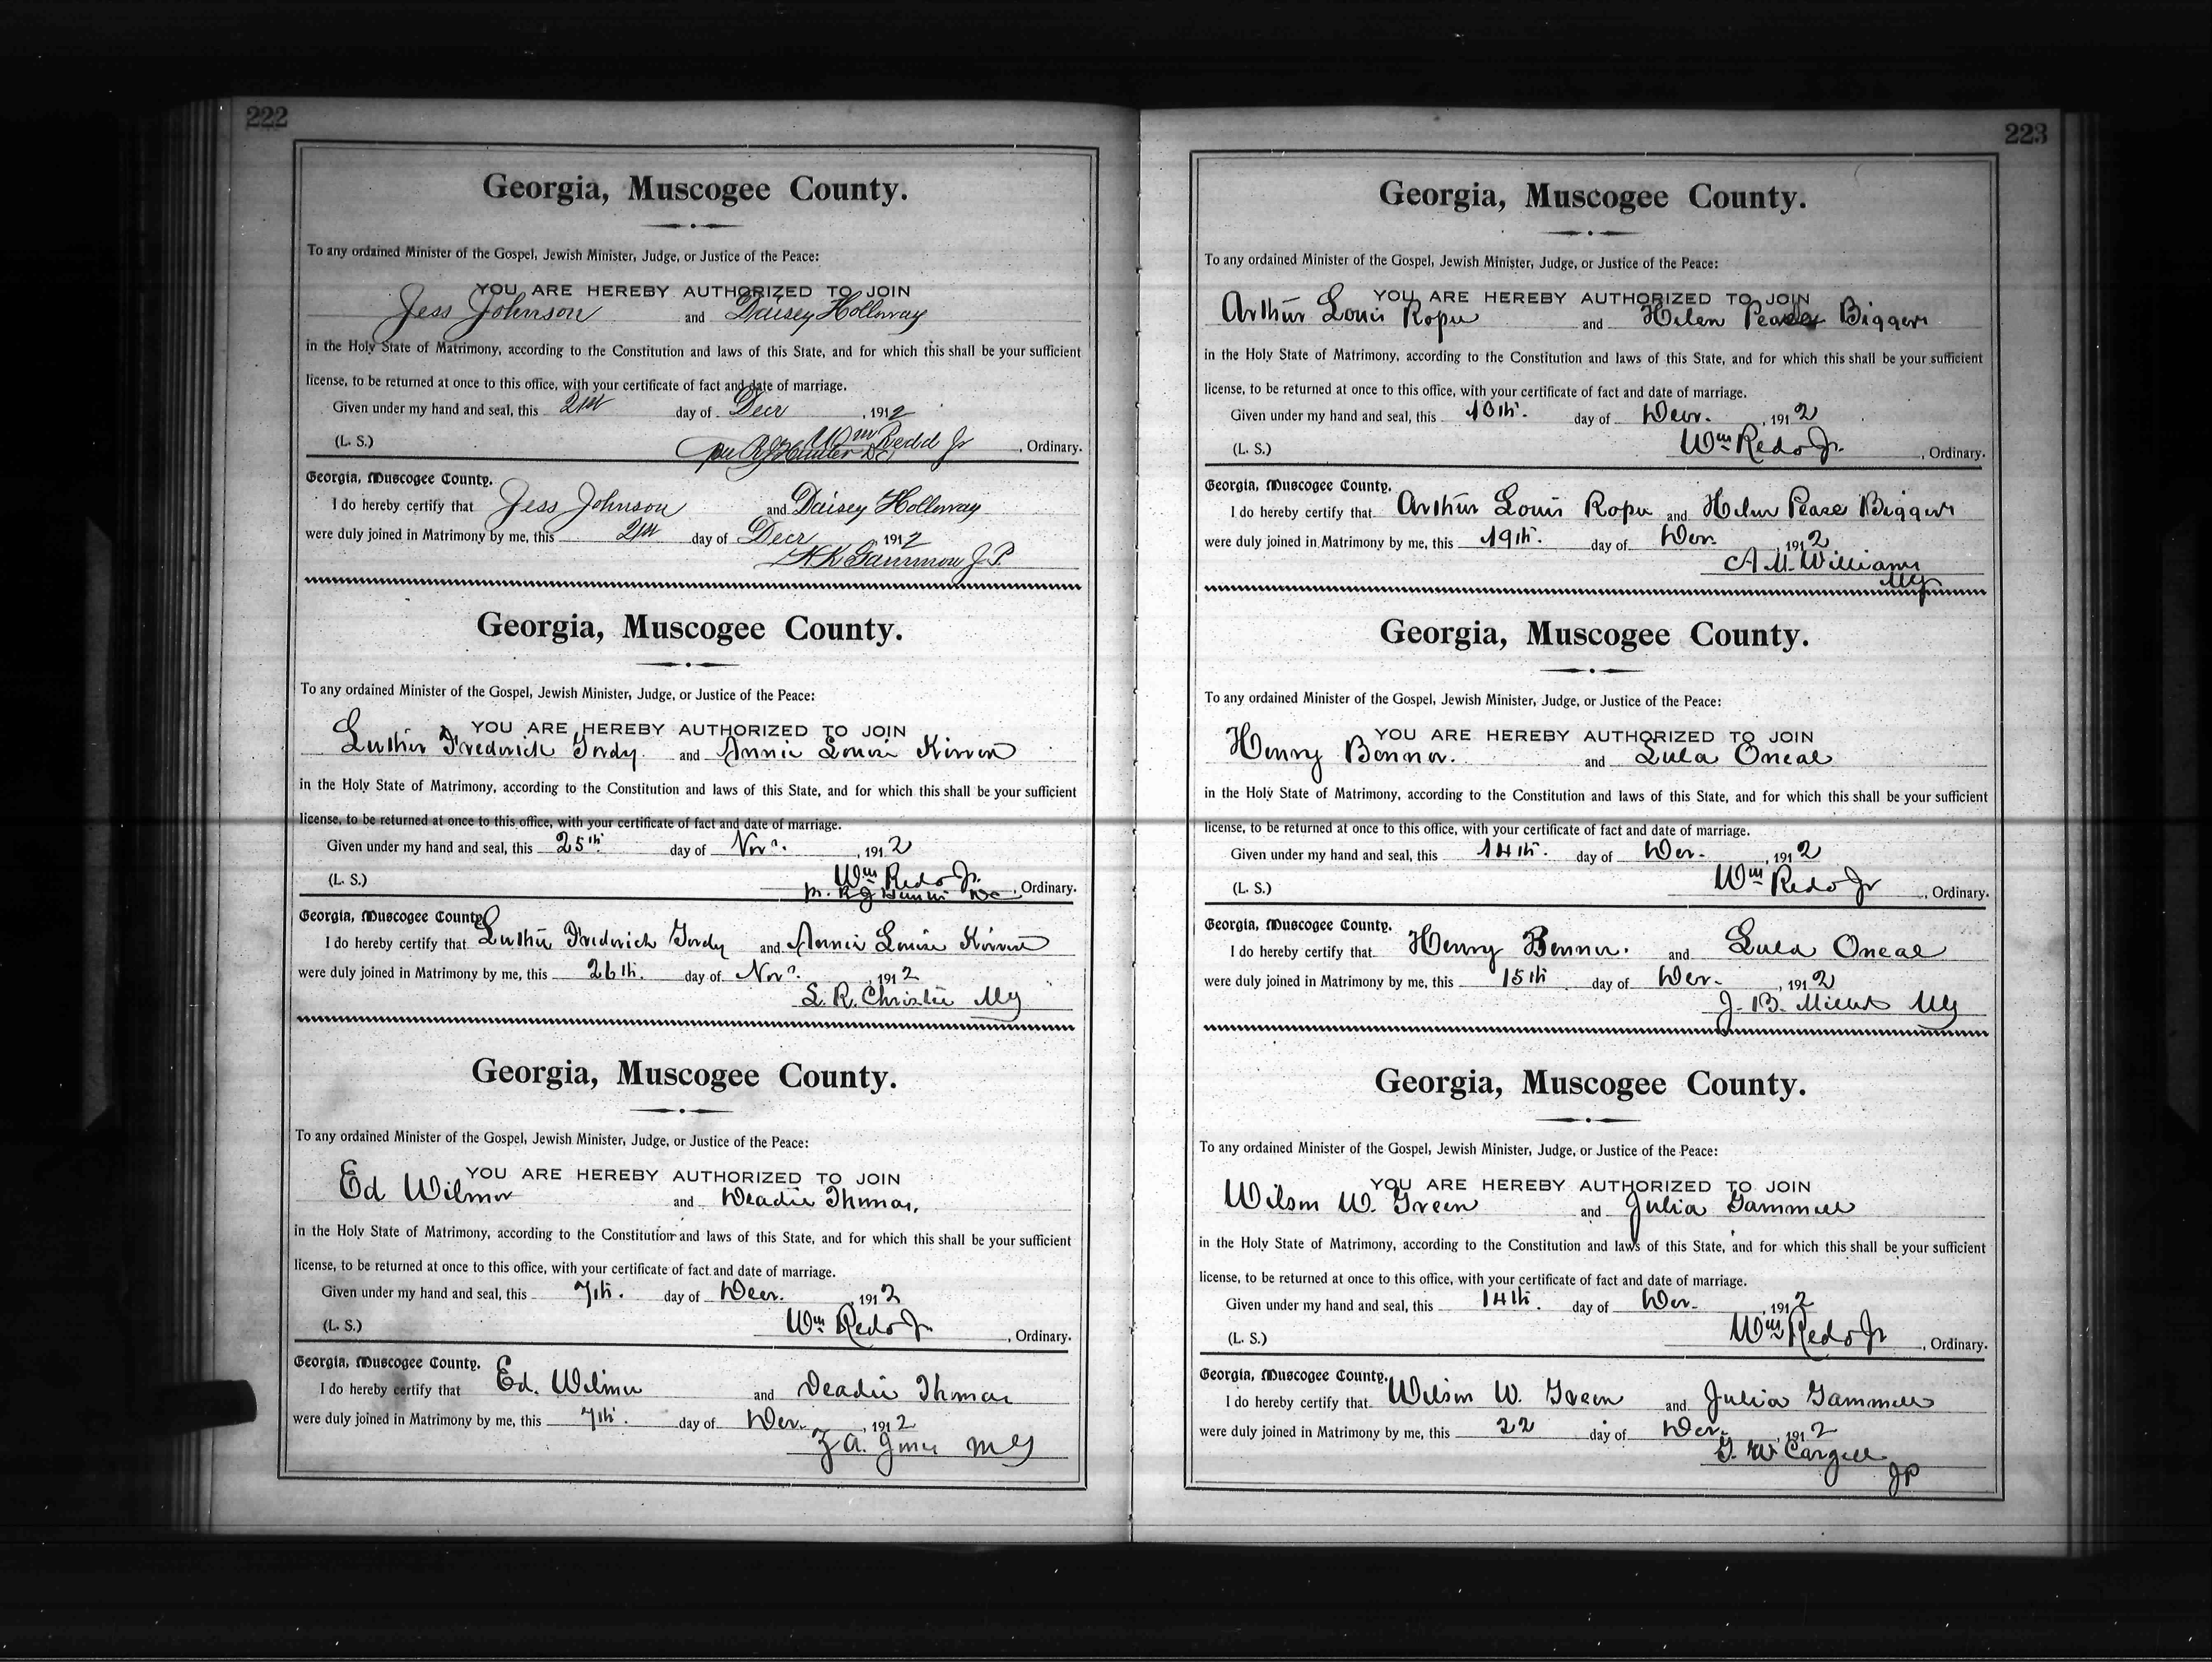 222
Georgia, Muscogee County.
To any ordained Minister of the Gospel, Jewish Minister, Judge, or Justice of the Peace:
YOU ARE HEREBY AUTHORIZED TO JOIN
Jess Johnson and Daisey Holloway
in the Holy State of Matrimony, according to the Constitution and laws of this State, and for which this shall be your sufficient
license, to be returned at once to this office, with your certificate of fact and date of marriage.
Given under my hand and seal, this 21st day of Decr , 1912
Wm Redd Jr
(L. S.) , Ordinary.
Georgia, Muscogee County.
I do hereby certify that Jess Johnson and Daisey Holloway
were duly joined in Matrimony by me, this 21st day of Decr 1912
J.P.
Georgia, Muscogee County.
To any ordained Minister of the Gospel, Jewish Minister, Judge, or Justice of the Peace:
YOU ARE HEREBY AUTHORIZED TO JOIN
Luther Frederick Gordy and Annie Louise Kirven
in the Holy State of Matrimony, according to the Constitution and laws of this State, and for which this shall be your sufficient
license, to be returned at once to this office, with your certificate of fact and date of marriage.
Given under my hand and seal, this 25th day of Novr. , 1912
Wm Redd Jr.
(L. S.) , Ordinary.
Georgia, Muscogee County.
I do hereby certify that Luther Frederick Gordy and Annie Louise Kirven
were duly joined in Matrimony by me, this 26th. day of Novr. , 1912
S. R. Christie MG
Georgia, Muscogee County.
To any ordained Minister of the Gospel, Jewish Minister, Judge, or Justice of the Peace:
YOU ARE HEREBY AUTHORIZED TO JOIN
Ed Wilmer and Deadie Thomas.
in the Holy State of Matrimony, according to the Constitution and laws of this State, and for which this shall be your sufficient
license, to be returned at once to this office, with your certificate of fact and date of marriage.
Given under my hand and seal, this 7th. day of Decr. , 1912
(L. S.) Wm Redd Jr , Ordinary.
Georgia, Muscogee County.
I do hereby certify that Ed. Wilmer and Deadie Thomas
were duly joined in Matrimony by me, this 7th. day of Decr. , 1912
A. MG
223
Georgia, Muscogee County.
To any ordained Minister of the Gospel, Jewish Minister, Judge, or Justice of the Peace:
YOU ARE HEREBY AUTHORIZED TO JOIN
Arthur Louis Roper and Helen Pease Biggers
in the Holy State of Matrimony, according to the Constitution and laws of this State, and for which this shall be your sufficient
license, to be returned at once to this office, with your certificate of fact and date of marriage.
Given under my hand and seal, this day of Decr. , 1912
(L. S.) Wm Redd Jr. , Ordinary.
Georgia, Muscogee County.
I do hereby certify that Arthur Louis Roper and Helen Pease Biggers
were duly joined in Matrimony by me, this 19th. day of Decr. , 1912
A. M. Williams
MG
Georgia, Muscogee County.
To any ordained Minister of the Gospel, Jewish Minister, Judge, or Justice of the Peace:
YOU ARE HEREBY AUTHORIZED TO JOIN
Henry Bonner. and Lula Oneal
in the Holy State of Matrimony, according to the Constitution and laws of this State, and for which this shall be your sufficient
license, to be returned at once to this office, with your certificate of fact and date of marriage.
Given under my hand and seal, this 14th. day of Decr. , 1912
(L. S.) Wm Redd Jr , Ordinary.
Georgia, Muscogee County.
I do hereby certify that Henry Bonner. and Lula Oneal
were duly joined in Matrimony by me, this 15th day of Decr. , 1912
J. B. MG
Georgia, Muscogee County.
To any ordained Minister of the Gospel, Jewish Minister, Judge, or Justice of the Peace:
YOU ARE HEREBY AUTHORIZED TO JOIN
Wilson W. Green and Julia Gammell
in the Holy State of Matrimony, according to the Constitution and laws of this State, and for which this shall be your sufficient
license, to be returned at once to this office, with your certificate of fact and date of marriage.
Given under my hand and seal, this 14th. day of Decr. , 1912
(L. S.) Wm Redd Jr , Ordinary.
Georgia, Muscogee County.
I do hereby certify that Wilson W. Green and Julia Gammell
were duly joined in Matrimony by me, this 22 day of Decr. , 1912
G. W Cargill
JP